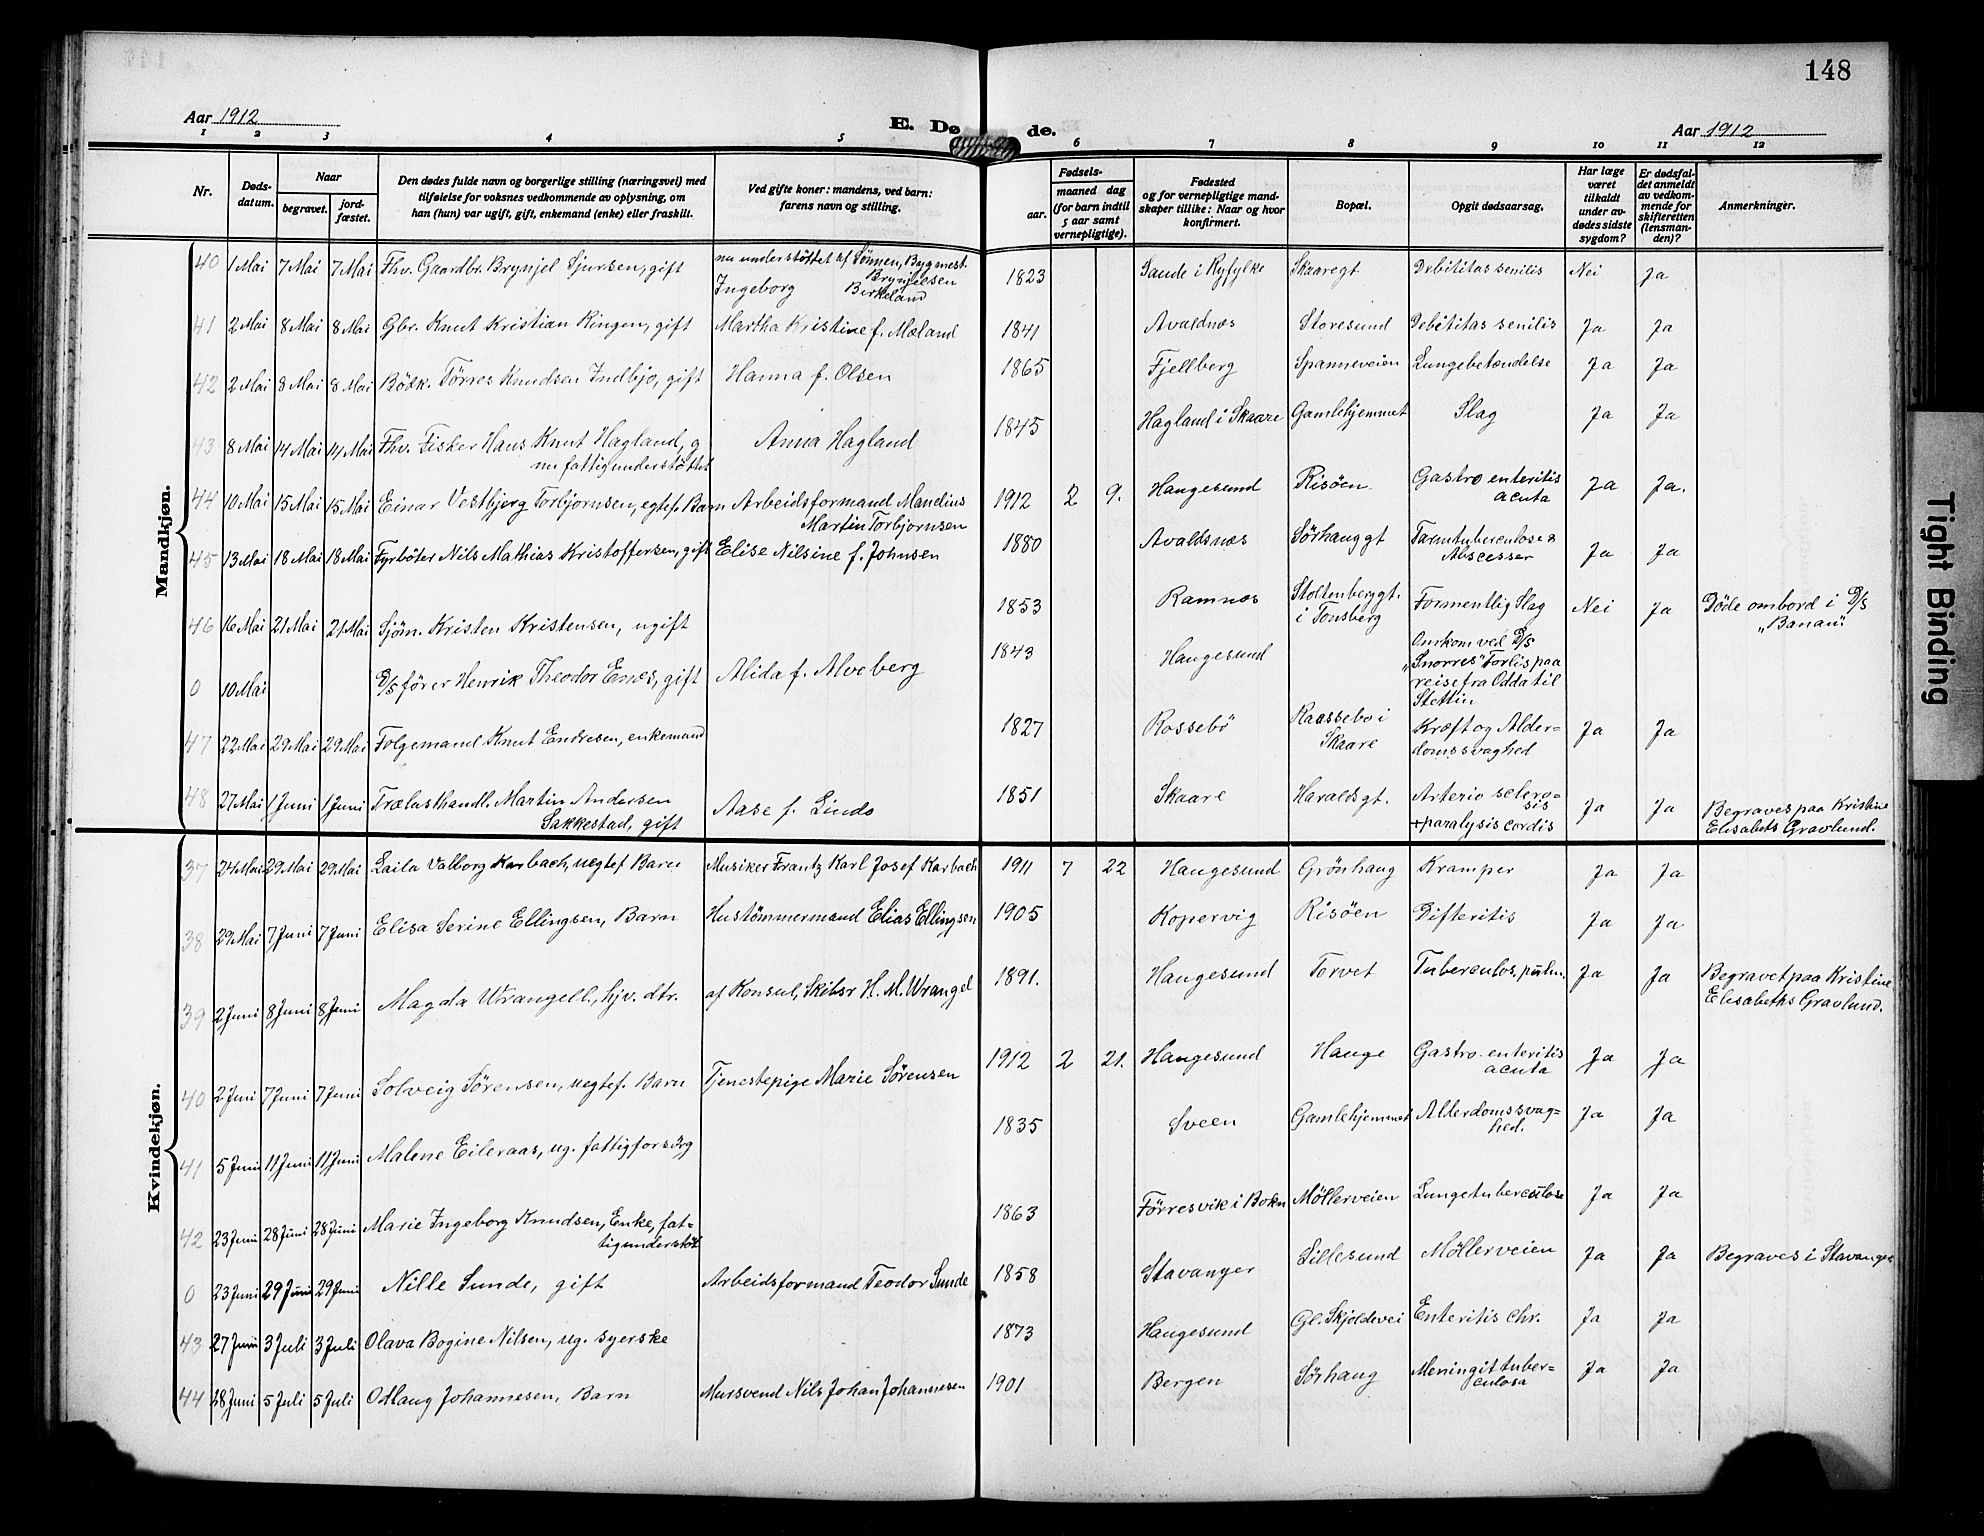 148
Aar 1912
E. Dø de.
Aar 1912
1 2 3 4 5 6 7 8 9 10 11 12
Nr.
Døds-
datum.
Naar
begravet.
jord-
fæstet.
Den dødes fulde navn og borgerlige stilling (næringsvei) med
tilføielse for voksnes vedkommende av oplysning, om
han (hun) var ugift, gift, enkemand (enke) eller fraskilt.
Ved gifte koner: mandens, ved barn:
farens navn og stilling.
Fødsels-
aar.
maaned dag
(for barn indtil
5 aar samt
vernepligtige).
Fødested
og for vernepligtige mand-
skaper tillike: Naar og hvor
konfirmert.
Bopæl.
Opgit dødsaarsag.
Har læge
været
tilkaldt
under av-
dødes sidste
sygdom?
Er dødsfal-
det anmeldt
av vedkom-
mende for
skifteretten
(lensman-
den)?
Anmerkninger.
Mandkjøn.
40 1 Mai 7 Mai 7 Mai Fhv. Gaardbr. Brynjel Sjursen, gift nu understöttet af Sönnen, Bygmest. Brynjelsen Birkeland Ingeborg 1823 Sande i Ryfylke Skaaregt Debititas senilis Nei Ja
41 2 Mai 8 Mai 8 Mai Gbr. Knut Kristian Ringen, gift Martha Kristine f. Mæland 1841 Avaldnæs Storesund Debititas senilis Ja Ja
42 2 Mai 8 Mai 8 Mai Bödk. Törres Knudsen Indbjo, gift Hanna f. Olsen 1865 Fjellberg Spanneveien Lungebetændelse Ja Ja
43 8 Mai 14 Mai 14 Mai Fhv. Fisker Hans Knut Hagland, g Anna Hagland 1845 Hagland i Skaare Gamlehjemmet Slag Ja Ja
nu fattigunderstöttet
44 10 Mai 15 Mai 15 Mai Einar Vestbjerg Torbjornsen, egtef. Barn Arbeidsformand Mandius 1912 2 9. Haugesund Risöen Gastro enteritis Ja Ja.
Martin Torbjornsen acuta
45 13 Mai 18 Mai 18 Mai Fyrböter Nils Mathias Kristoffersen, gift Elise Nilsine f. Johnsen 1880 Avaldsnæs Sörhauggt Tarmtuberculose & Ja Ja
Abscesser
46 16 Mai 21 Mai 21 Mai Sjöm. Kristen Kristensen, ugift 1853 Ramnæs Stoltenberggt. Formentlig Slag Nei Ja Döde ombord i D/s
i Tonsberg "Banan".
0 10 Mai D/S förer Henrik Theodor Enes, gift Alida f. Alveberg 1843 Haugesund Omkom ved D/S
"Snorres" Forlis paa
reise fra Odda til
Stettin
47 22 Mai 29 Mai 29 Mai Folgemand Knut Endresen, enkemand 1827 Rossebö Raassebo i Kræft og Alder- Ja Ja
Skaare domssvaghed
48 27 Mai 1 Juni 1 Juni Trælasthandl. Martin Andersen Aase f. Linds 1851 Skaare Haraldsgt. Arterio sclero- Ja Ja Begraves paa Kristine
Sakkestad, gift sis + paralysis cordis Elisabets Gravlund.
Kvindekjøn.
37 24 Mai 29 Mai 29 Mai Laila Valborg Karbach, uegtef Barn Musiker Frantz Karl Josef Karbach 1911 7 22 Haugesund Grönhaug Kramper Ja Ja
38 29 Mai 7 Juni 7 Juni Elisa Serine Ellingsen, Barn Hustömmermand Elias Ellingsen 1905 Kopervig Risöen Difteritis Ja Ja
39 2 Juni 8 Juni 8 Juni Magda Wrangell, hjv. dtr. af Konsul, Skibsr H. M. Wrangel 1891. Haugesund Torvet Tuberculos. pulm. Ja Ja Begravet paa Kristine
Elisabeths Gravlund.
40 2 Juni 7 Juni 7 Juni Solveig Sörensen, uegtef. Barn Tjenestepige Marie Sörensen 1912 2 21. Haugesund Hauge Gastro-enteritis Ja Ja
acuta
41 5 Juni 11 Juni 11 Juni Malene Eileraas, ug. fattigforsörg 1835 Sveen Gamlehjemmet Alderdomssvag- Ja Ja
hed.
42 23 Juni 28 Juni 28 Juni Marie Ingeborg Knudsen, Enke, fat- 1863 Förresvik i Bokn Möllerveien Lungetuberculose Ja Ja
tigunderstöt
0 23 Juni 29 Juni 29 Juni Nille Sunde, gift Arbeidsformand Teodor Sunde 1858 Stavanger Lillesund Möllerveien Ja Ja Begraves i Stavanger
43 27 Juni 3 Juli 3 Juli Olava Bogine Nilsen, ug. syerske 1873 Haugesund Gl. Skjoldevei Enteritis chr. Ja Ja
44 28 Juni 5 Juli 5 Juli Odlaug Johannesen, Barn Mursvend Nils Johan Johannesen 1901 Bergen Sörhaug Meningit tuber- Ja Ja
culosa
Tight Binding